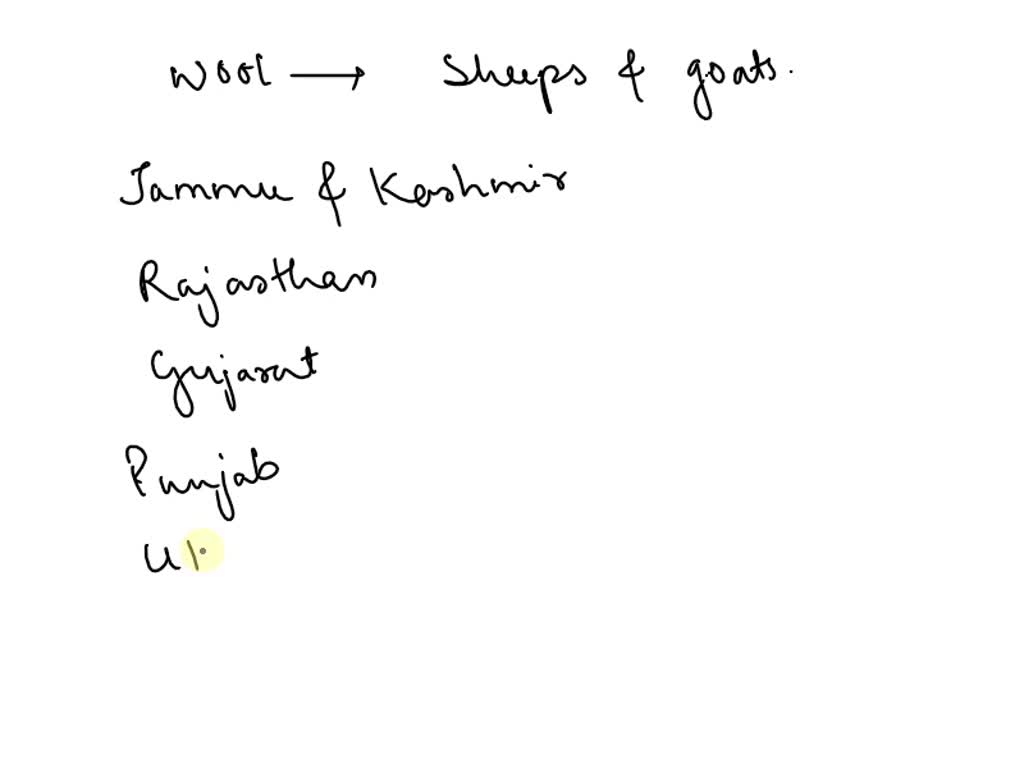 Wool → Sheeps & goats.
Jammu & Kashmir
Rajasthan
Gujarat
Punjab